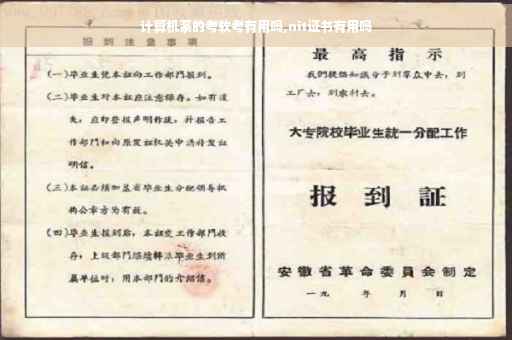 计算机系的考软考有用吗,nit证书有用吗
报到注意事项
(一)毕业生凭本证向工作部门报到。
(二)毕业生对本证应注意保存。如有遗
失，应即登报声明作废，并报告工
作部门和向原发证机关申请补发证
明信。
(三)本证必须加盖省毕业生分配领导机
构公章方为有效。
(四)毕业生报到后，本证交工作部门收
存；上级部门继续转派毕业生到所
属单位时，用本部门的介绍信。
最高指示
我们提倡知识分子到群众中去，到
工厂去，到农村去。
大专院校毕业生统一分配工作
报到证
安徽省革命委员会制定
一九 年 月 日